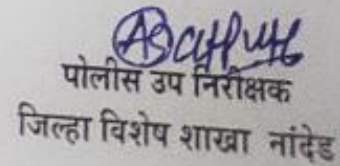 पोलीस उप निरीक्षक
जिल्हा विशेष शाखा नांदेड